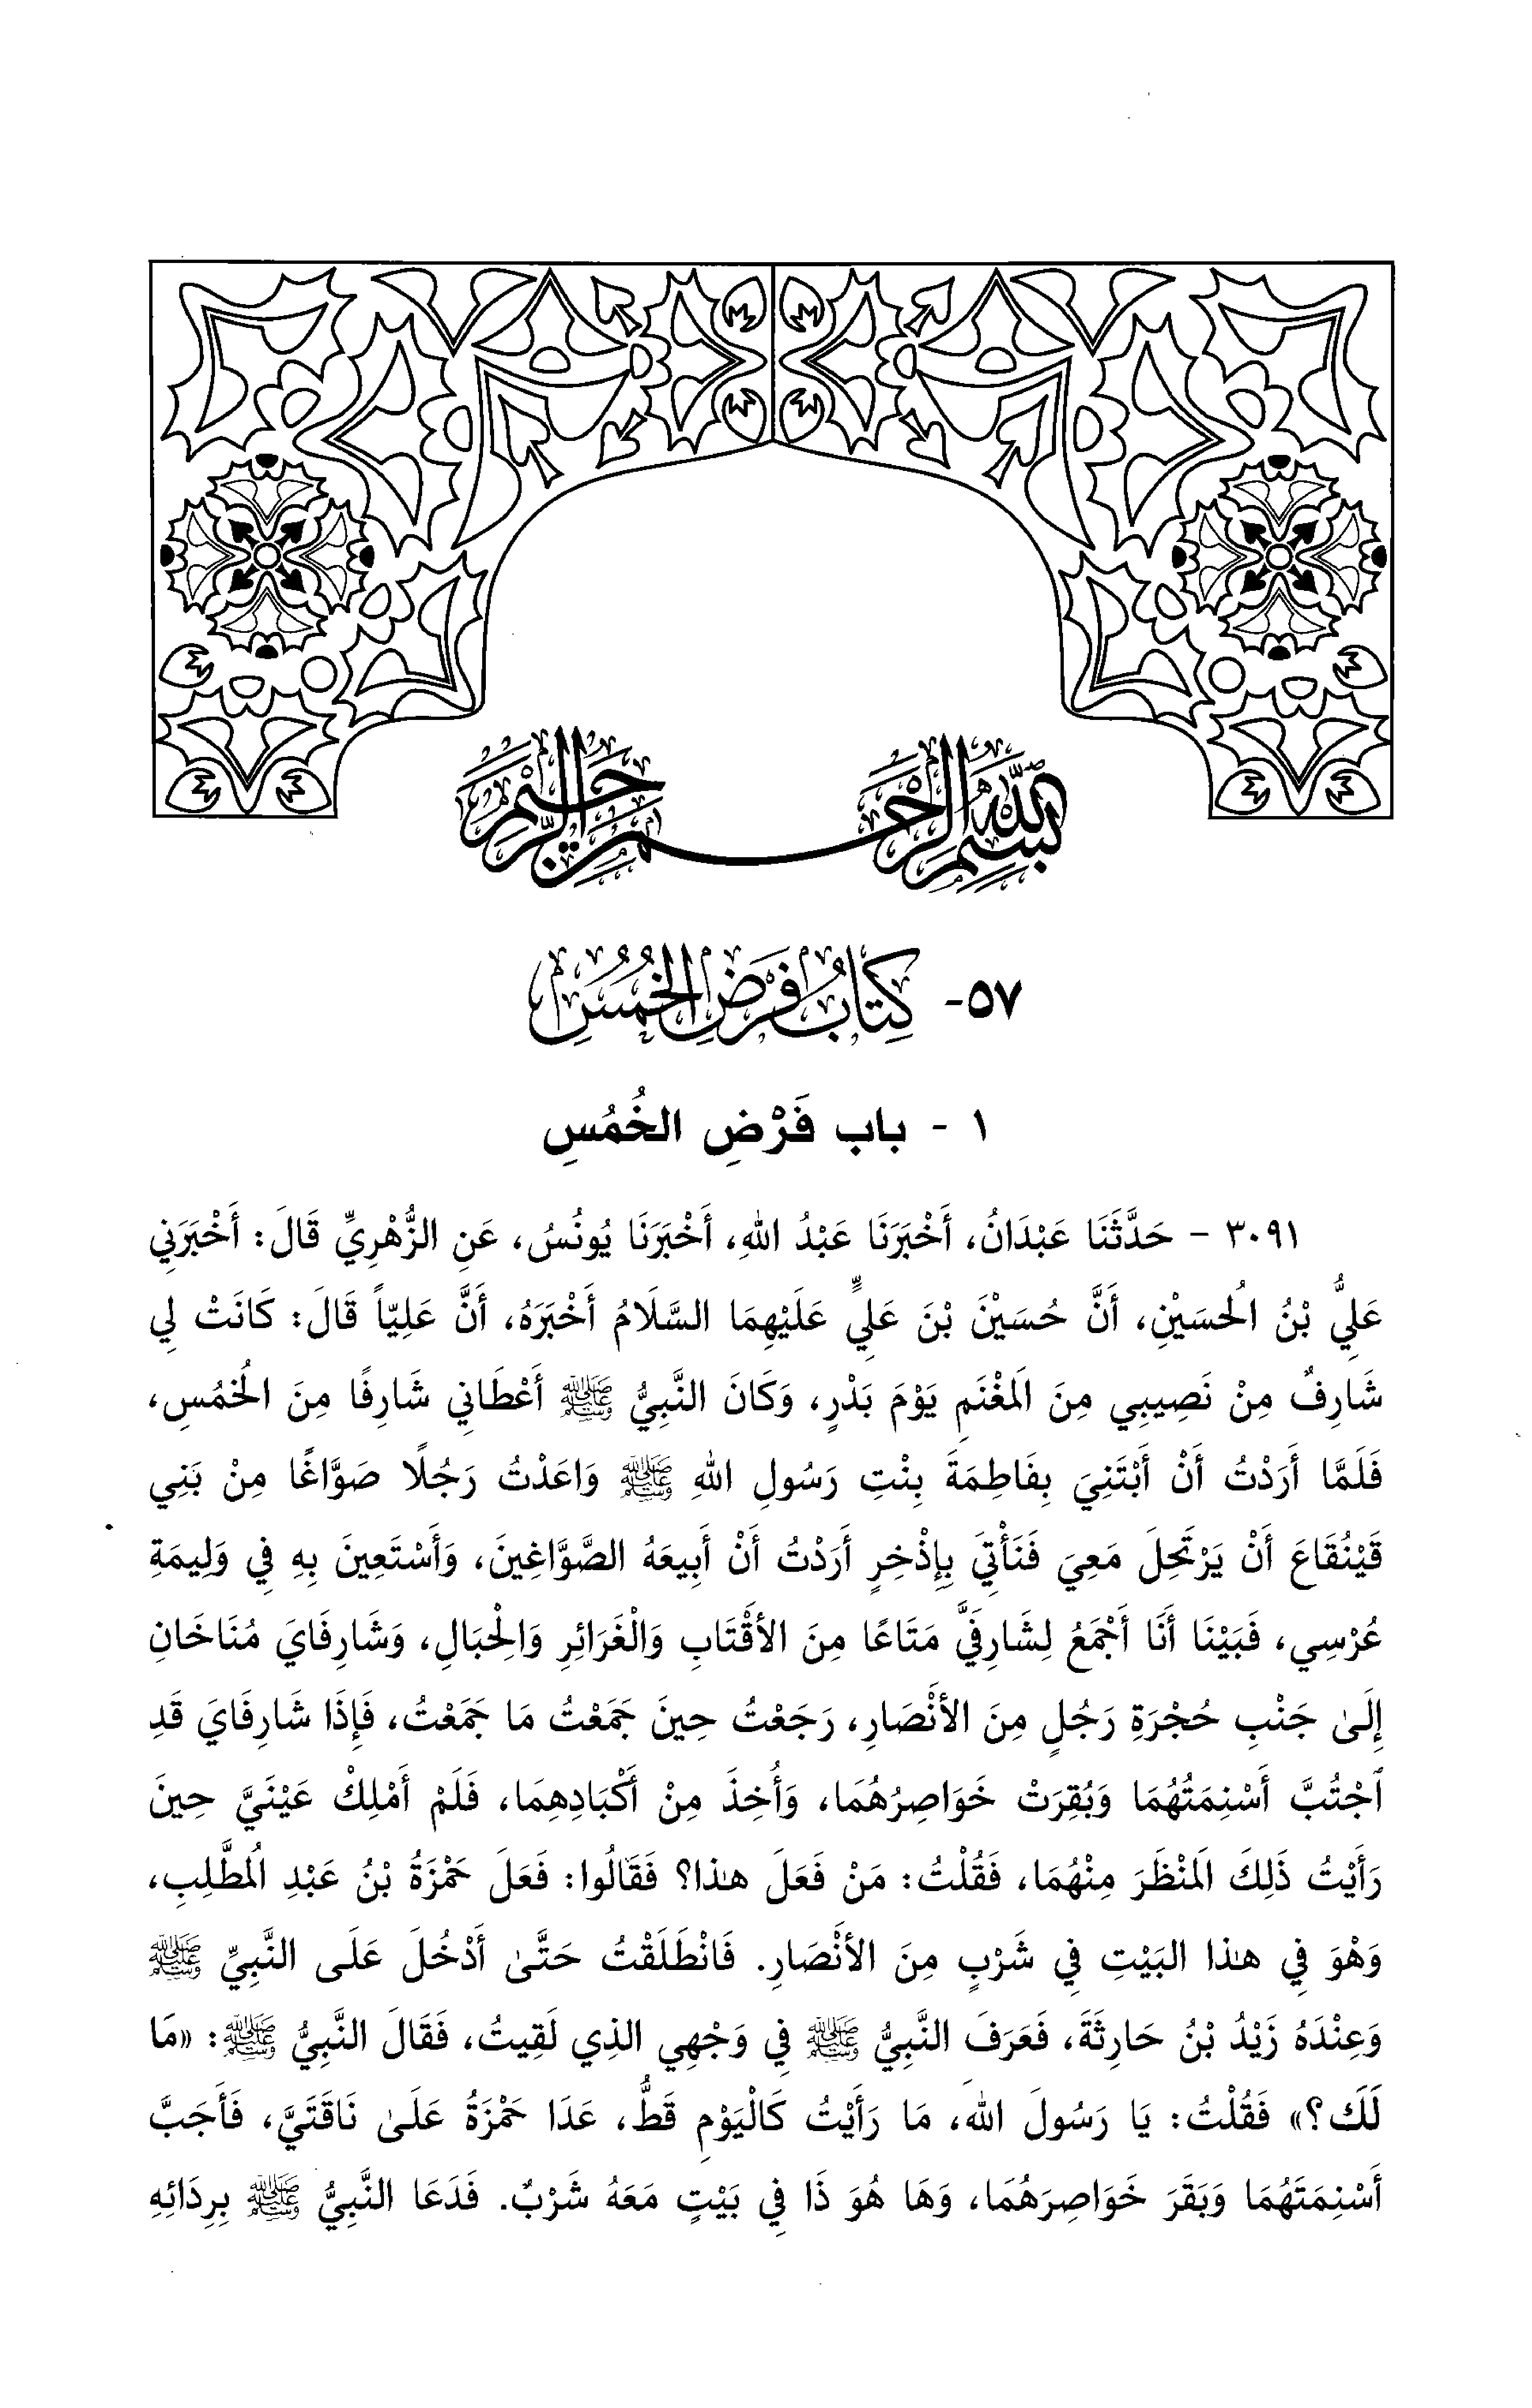 بِسْمِ اللهِ الرَّحْمٰنِ الرَّحِيمِ
٥٧- كِتَابُ فَرْضِ الخُمُسِ
١ - باب فَرْضِ الخُمُسِ
٣٠٩١ - حَدَّثَنَا عَبْدَانُ، أَخْبَرَنَا عَبْدُ اللهِ، أَخْبَرَنَا يُونُسُ، عَنِ الزُّهْرِيِّ قَالَ: أَخْبَرَنِي
عَلِيُّ بْنُ الْحُسَيْنِ، أَنَّ حُسَيْنَ بْنَ عَلِيٍّ عَلَيْهِمَا السَّلَامُ أَخْبَرَهُ، أَنَّ عَلِيّاً قَالَ: كَانَتْ لِي
شَارِفٌ مِنْ نَصِيبِي مِنَ الْمَغْنَمِ يَوْمَ بَدْرٍ، وَكَانَ النَّبِيُّ ﷺ أَعْطَانِي شَارِفًا مِنَ الْخُمُسِ،
فَلَمَّا أَرَدْتُ أَنْ أَبْتَنِيَ بِفَاطِمَةَ بِنْتِ رَسُولِ اللهِ ﷺ وَاعَدْتُ رَجُلًا صَوَّاغًا مِنْ بَنِي
قَيْنُقَاعَ أَنْ يَرْتَحِلَ مَعِيَ فَنَأْتِيَ بِإِذْخِرٍ أَرَدْتُ أَنْ أَبِيعَهُ الصَّوَّاغِينَ، وَأَسْتَعِينَ بِهِ فِي وَلِيمَةِ
عُرْسِي، فَبَيْنَا أَنَا أَجْمَعُ لِشَارِفَيَّ مَتَاعًا مِنَ الأَقْتَابِ وَالْغَرَائِرِ وَالْحِبَالِ، وَشَارِفَايَ مُنَاخَانِ
إِلَىٰ جَنْبِ حُجْرَةِ رَجُلٍ مِنَ الأَنْصَارِ، رَجَعْتُ حِينَ جَمَعْتُ مَا جَمَعْتُ، فَإِذَا شَارِفَايَ قَدِ
ٱجْتُبَّ أَسْنِمَتُهُمَا وَبُقِرَتْ خَوَاصِرُهُمَا، وَأُخِذَ مِنْ أَكْبَادِهِمَا، فَلَمْ أَمْلِكْ عَيْنَيَّ حِينَ
رَأَيْتُ ذَلِكَ الْمَنْظَرَ مِنْهُمَا، فَقُلْتُ: مَنْ فَعَلَ هـٰذا؟ فَقَالُوا: فَعَلَ حَمْزَةُ بْنُ عَبْدِ الْمُطَّلِبِ،
وَهْوَ فِي هـٰذا البَيْتِ فِي شَرْبٍ مِنَ الأَنْصَارِ. فَانْطَلَقْتُ حَتَّىٰ أَدْخُلَ عَلَى النَّبِيِّ ﷺ
وَعِنْدَهُ زَيْدُ بْنُ حَارِثَةَ، فَعَرَفَ النَّبِيُّ ﷺ فِي وَجْهِي الذِي لَقِيتُ، فَقَالَ النَّبِيُّ ﷺ: «مَا
لَكَ؟» فَقُلْتُ: يَا رَسُولَ اللهِ، مَا رَأَيْتُ كَالْيَوْمِ قَطُّ، عَدَا حَمْزَةُ عَلَىٰ نَاقَتَيَّ، فَأَجَبَّ
أَسْنِمَتَهُمَا وَبَقَرَ خَوَاصِرَهُمَا، وَهَا هُوَ ذَا فِي بَيْتٍ مَعَهُ شَرْبٌ. فَدَعَا النَّبِيُّ ﷺ بِرِدَائِهِ